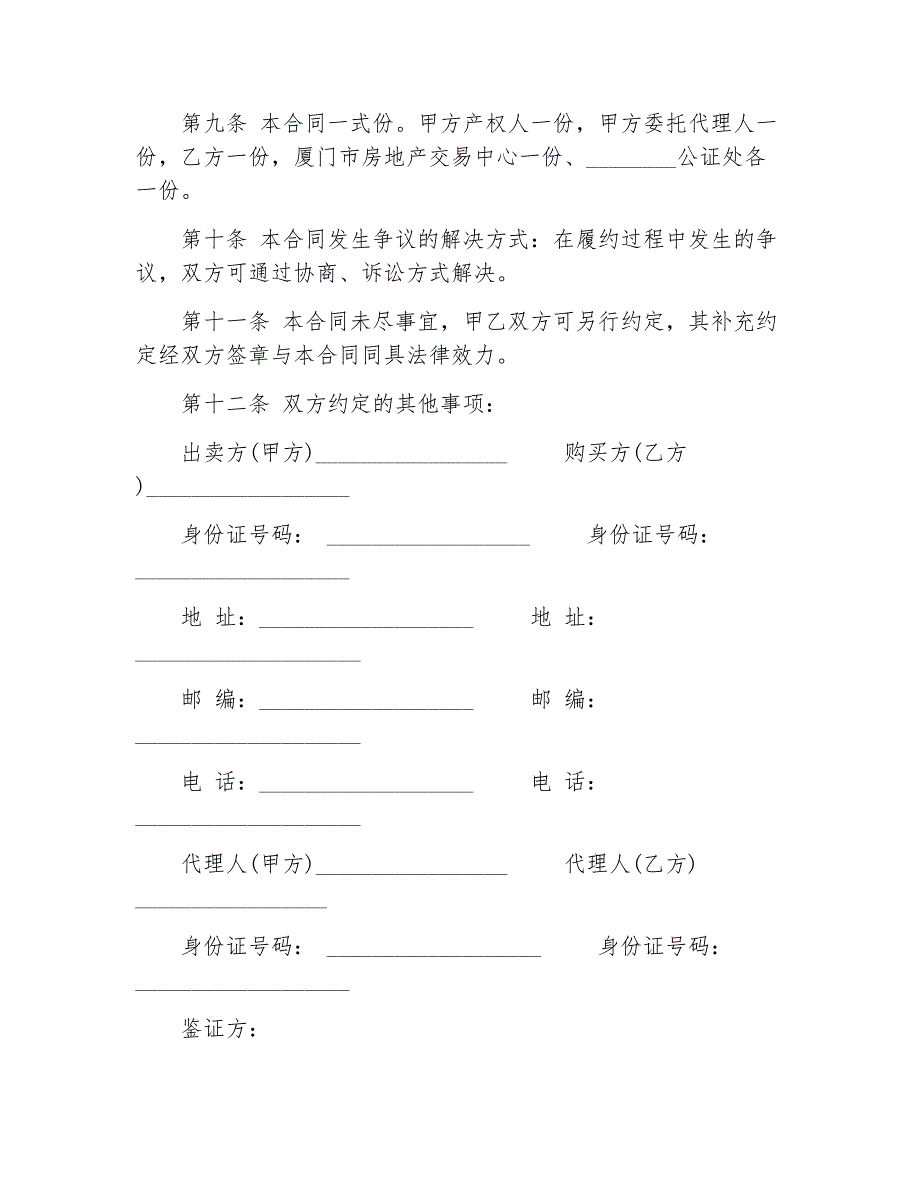 第九条 本合同一式份。甲方产权人一份，甲方委托代理人一
份，乙方一份，厦门市房地产交易中心一份、________公证处各
一份。
第十条 本合同发生争议的解决方式：在履约过程中发生的争
议，双方可通过协商、诉讼方式解决。
第十一条 本合同未尽事宜，甲乙双方可另行约定，其补充约
定经双方签章与本合同同具法律效力。
第十二条 双方约定的其他事项：
出卖方(甲方)_________________ 购买方(乙方
)__________________
身份证号码： __________________ 身份证号码：
___________________
地 址：___________________ 地 址：
____________________
邮 编：___________________ 邮 编：
____________________
电 话：___________________ 电 话：
____________________
代理人(甲方)_________________ 代理人(乙方)
_________________
身份证号码： ___________________ 身份证号码：
___________________
鉴证方：